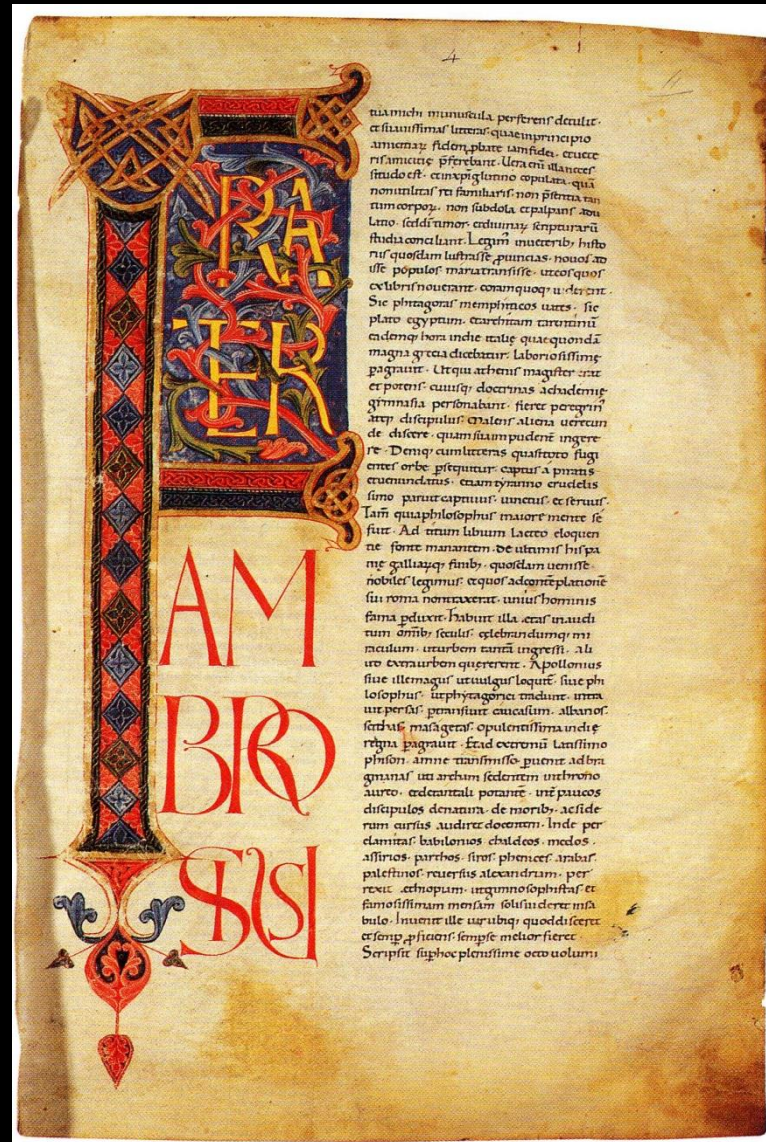 4
F
RA
TER
AM
BRO
SIUS
tua michi munuscula perferens detulit·
et suauissimas litteras· quae inprincipio
amicitiaꝝ fidem ꝓbate iam fidei· et uete
ris amicitię p̄ferebant· Uera eñ illa neces
situdo est· et inxp̄i glutino copulata· quā
non utilitas rei familiaris· non p̄sentia tan
tum corpoꝝ· non subdola et palpans adu
latio· sed dī timor· et diuinaꝝ scripturarū
studia conciliant· Legim̄ inueterib; histo
riis quosdam lustrasse ꝓuincias· nouos ad
isse populos· maria transisse· ut eos quos
ex libris nouerant· coram quoq; uiderent·
Sic phitagoras memphiticos uates· sic
plato egyptum· et architam tarentinū
eademq; hora indie italię quae quondā
magna grecia dicebatur· laboriosissimę
pagrauit· Ut qui athenis magister erat
et potens· cuiusq; doctrinas achademię
gimnasia personabant· fieret peregrin̄
atq; discipulus· Malens aliena uerecun
de discere· quam sua impudent̄ ingere
re· Deniq; cum litteras quasi toto fugi
entes orbe p̱sequitur· captus a piratis
et uenundatus· etiam tyranno crudelis
simo paruit captiuus· uinctus· et seruus·
Tam̄ quia philosophus maiore mente sé
fuit· Ad titum libium lacteo eloquen
tię fonte manantem· de ultimis hispa
nię galliaꝝq; finib;· quosdam uenisse
nobiles legimus· et quos ad contēplationē
sui roma non traxerat· unius hominis
fama ꝑduxit· Habuit illa etas inaudi
tum omīb; seculis· celebrandumq; mi
raculum· ut urbem tantā ingressi· ali
ud extra urbem quererent· Apollonius
siue ille magus ut uulgus loquit̄· siue phi
losophus· ut phytagorici tradunt· intra
uit persas· ꝑtransiuit caucasum· albanos·
scithas· masagetas· opulentissima indię
regna ꝑagrauit· Et ad extremū latissimo
phison· amne transmisso· ꝑuenit ad bra
gmanas· uti archam sedentem inthrono
aureo· et de tantali potantē· int̄ paucos
discipulos de natura· de morib;· ac side
rum cursus audiret docentem· Inde per
elamitas· babilonios· chaldeos· medos·
assirios· parthos· siros· phenices· arabas·
palestinos· reuersus alexandriam· per
rexit ethiopium· ut gimnosophistas et
famosissimam mensam solis uideret insa
bulo· Inuenit ille uir ubiq; quod disceret
et semꝑ ꝓficiens· semp se melior fieret·
Scripsit sup̱ hoc plenissime octo uolumi